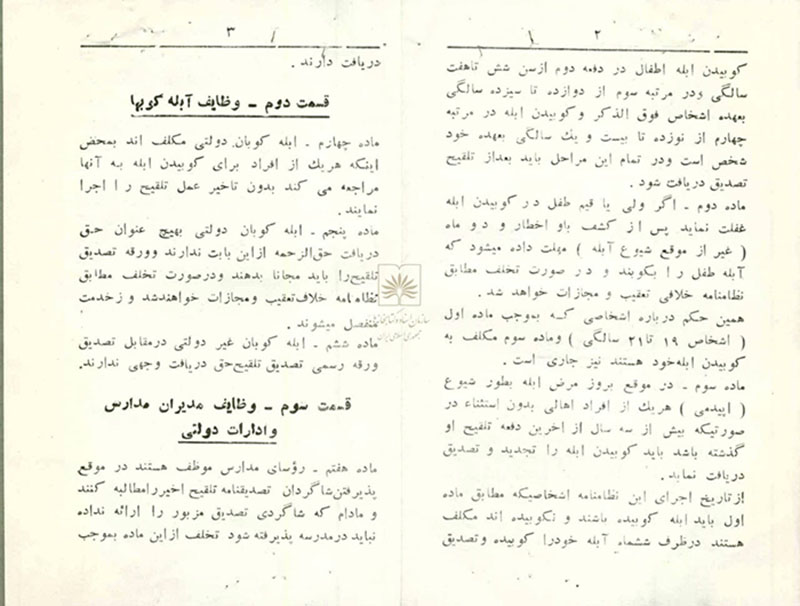 ۲
کوبیدن ابله اطفال در دفعه دوم ازسن شش تاهفت
سالگی ودر مرتبه سوم از دوازده تا سیزده سالگی
بعهده اشخاص فوق الذکر وکوبیدن ابله در مرتبه
چهارم از نوزده تا بیست و یك سالگی بعهده خود
شخص است ودر تمام این مراحل باید بعداز تلقیح
تصدیق دریافت شود .
ماده دوم ـ اگر ولی یا قیم طفل در کوبیدن ابله
غفلت نماید پس از کشف باو اخطار و دو ماه
( غیر از موقع شیوع آبله ) مهلت داده میشود که
آبله طفل را بکوبند و در صورت تخلف مطابق
نظامنامه خلافی تعقیب و مجازات خواهد شد .
همین حکم درباره اشخاصی که بموجب ماده اول
( اشخاص ۱۹ تا۲۱ سالگی ) وماده سوم مکلف به
کوبیدن ابله‌خود هستند نیز جاری است .
ماده سوم ـ در موقع بروز مرض ابله بطور شیوع
( اپیدمی ) هریك از افراد اهالی بدون استثناء در
صورتیکه بیش از سه سال از اخرین دفعه تلقیح او
گذشته باشد باید کوبیدن ابله را تجدید و تصدیق
دریافت نماید .
ازتاریخ اجرای این نظامنامه اشخاصیکه مطابق ماده
اول باید ابله کوبیده باشند و نکوبیده اند مکلف
هستند درظرف ششماه آبله خودرا کوبیده وتصدیق
۳
دریافت دارند .
قسمت دوم ـ وظایف آبله کوبها
ماده چهارم ـ ابله کوبان دولتی مکلف اند بمحض
اینکه هریك از افراد برای کوبیدن ابله به آنها
مراجعه می کند بدون تاخیر عمل تلقیح را اجرا
نمایند .
ماده پنجم ـ ابله کوبان دولتی بهیچ عنوان حق
دریافت حق‌الزحمه ازاین بابت ندارند وورقه تصدیق
تلقیح‌را باید مجانا بدهند ودرصورت تخلف مطابق
نظامنامه خلاف‌تعقیب ومجازات خواهندشد وازخدمت
منفصل میشوند .
ماده ششم ـ ابله کوبان غیر دولتی درمقابل تصدیق
ورقه رسمی تصدیق تلقیح‌حق دریافت وجهی ندارند.
قسمت سوم ـ وظایف مدیران مدارس
وادارات دولتی
ماده هفتم ـ رؤسای مدارس موظف هستند در موقع
پذیرفتن‌شاگردان تصدیقنامه تلقیح اخیررامطالبه کنند
و مادام که شاگردی تصدیق مزبور را ارائه نداده
نباید درمدرسه پذیرفته شود تخلف ازاین ماده بموجب